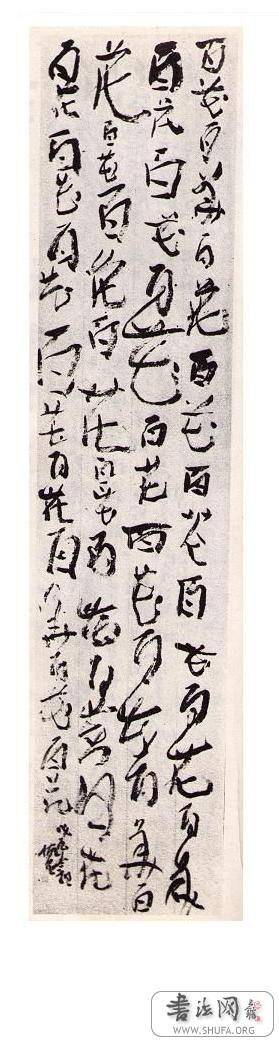 百花百花百花百花百花百花百花百花
百花百花百花百花百花百花百花百
花百花百花百花百花百花百花百花
百花百花百花百花百花百花百花百花
書法网
WWW.SHUFA.ORG